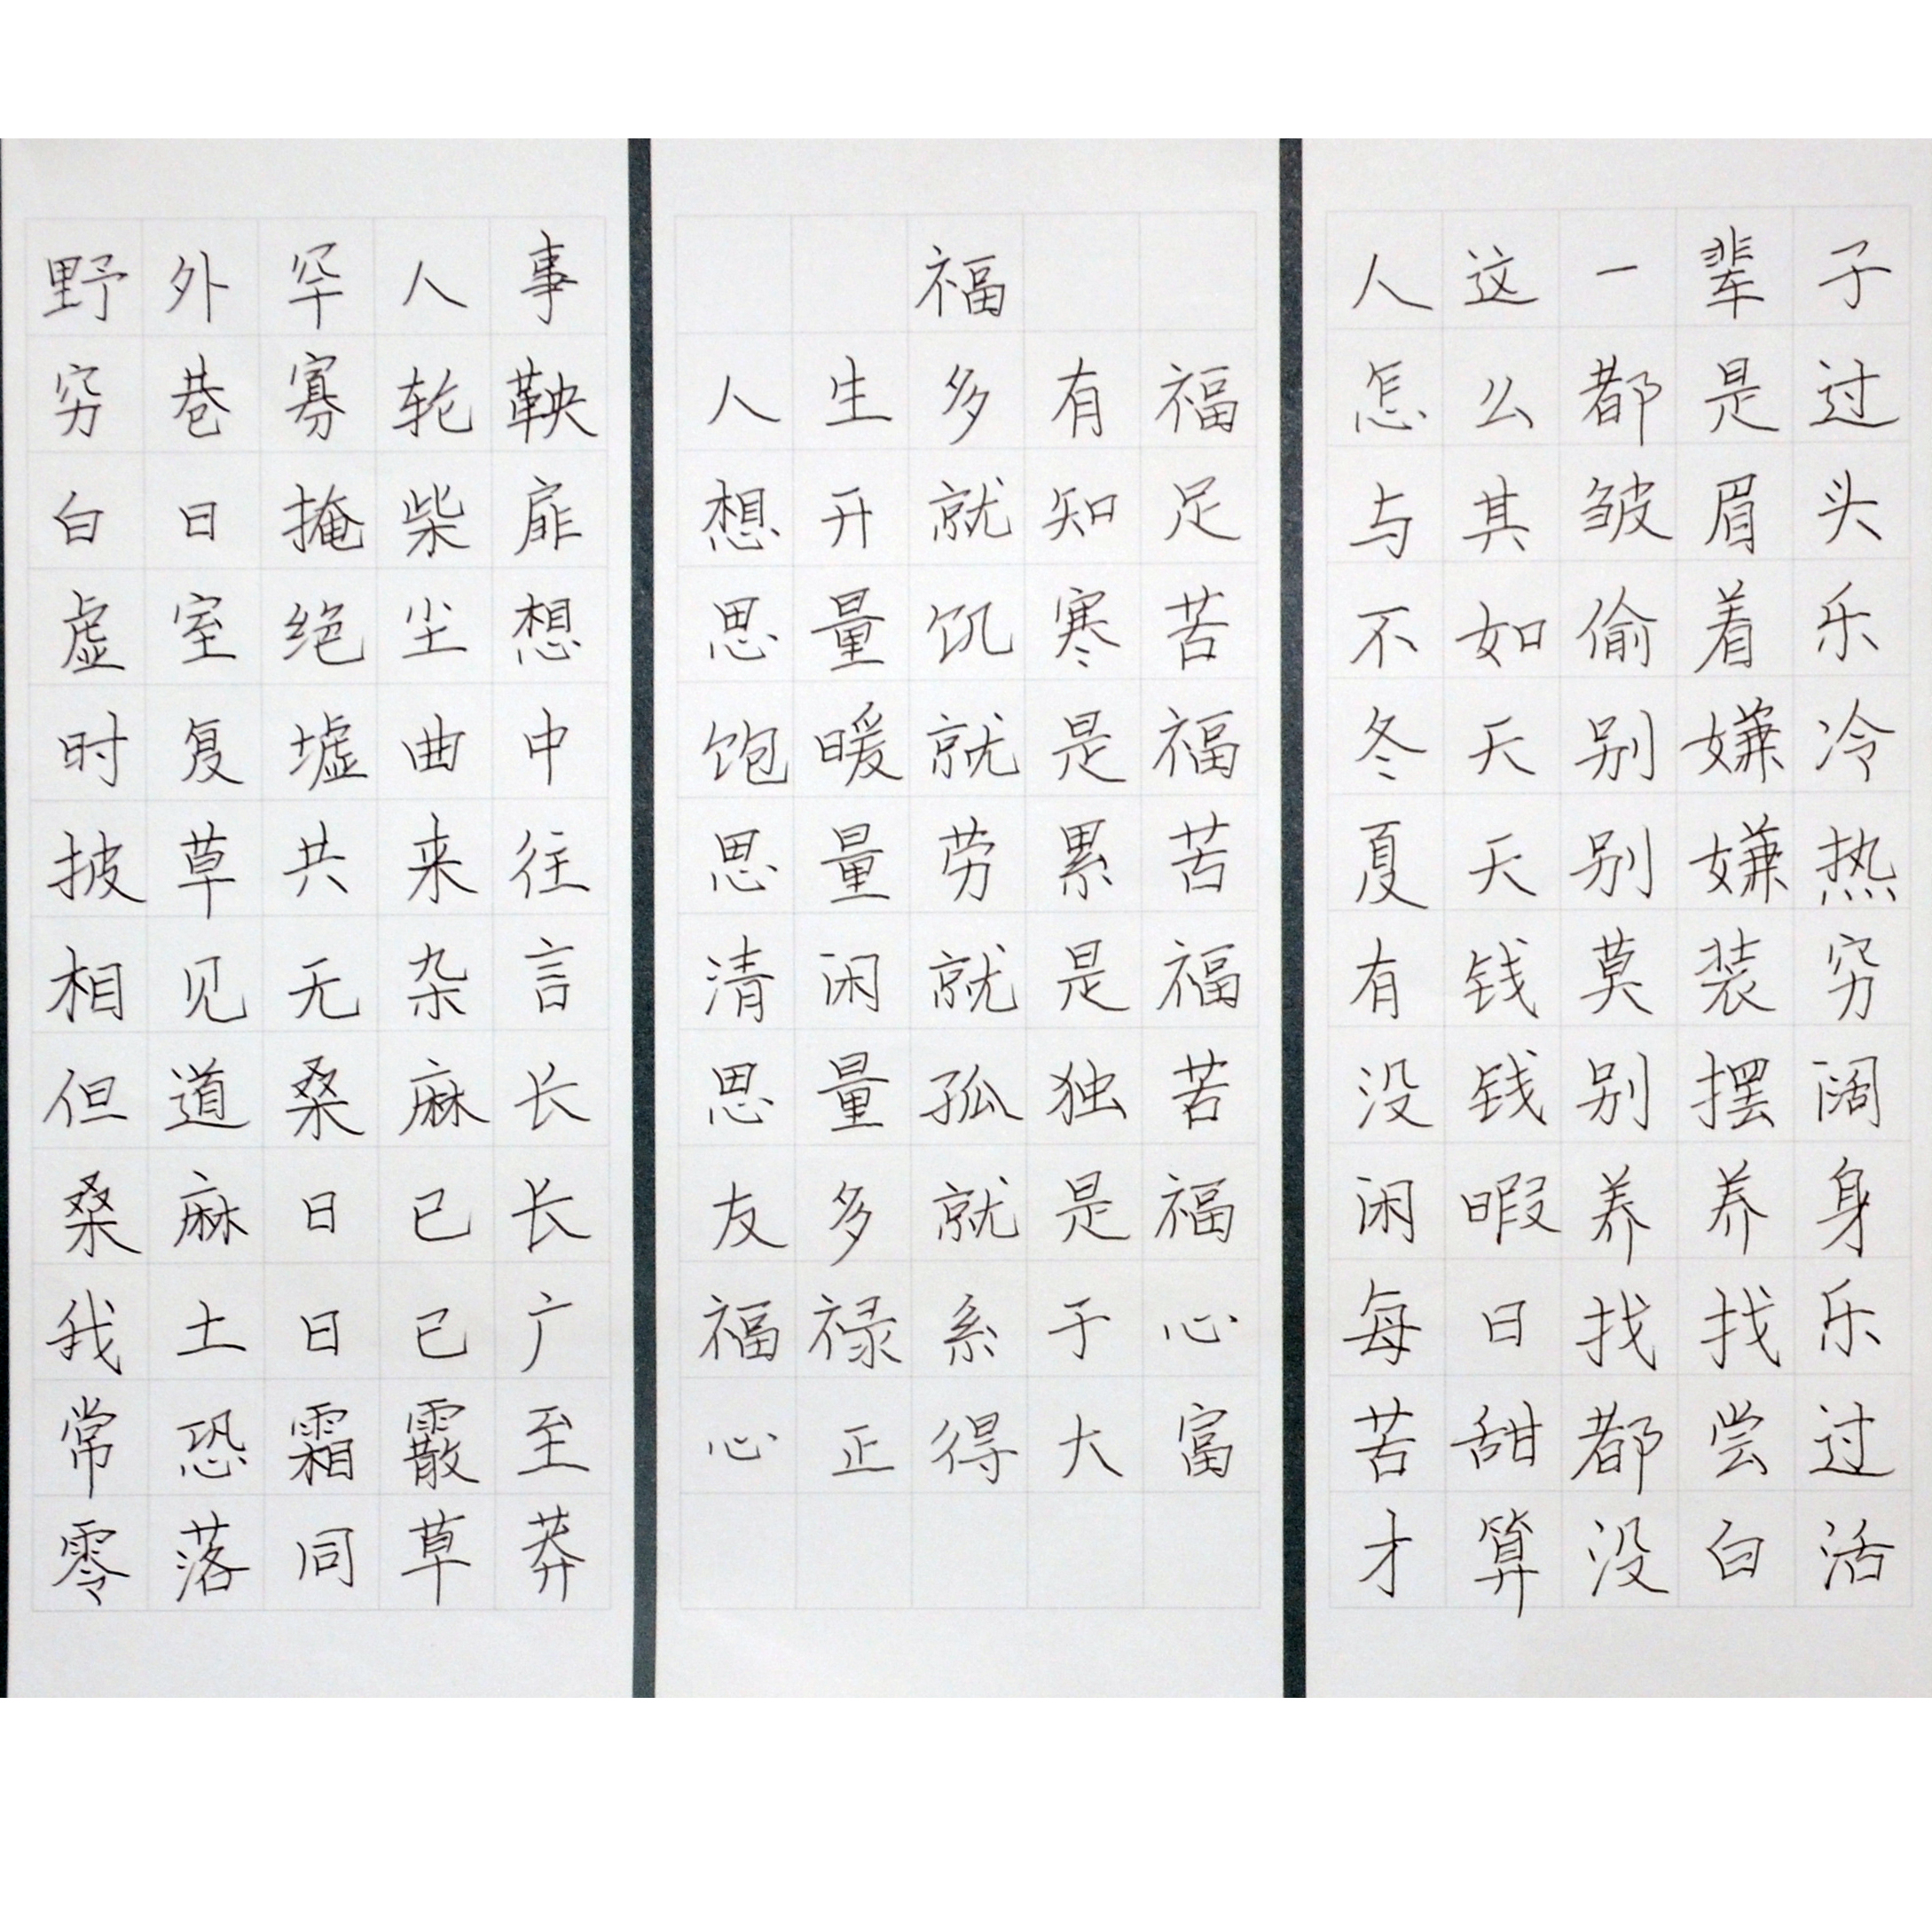 野外罕人事
穷巷寡轮鞅
白日掩柴扉
虚室绝尘想
时复墟曲中
披草共来往
相见无杂言
但道桑麻长
桑麻日已长
我土日已广
常恐霜霰至
零落同草莽
福
人生多有福
想开就知足
思量饥寒苦
饱暖就是福
思量劳累苦
清闲就是福
思量孤独苦
友多就是福
福禄系于心
心正得大富
人这一辈子
怎么都是过
与其皱眉头
不如偷着乐
冬天别嫌冷
夏天别嫌热
有钱莫装穷
没钱别摆阔
闲暇养养身
每日找找乐
苦甜都尝过
才算没白活